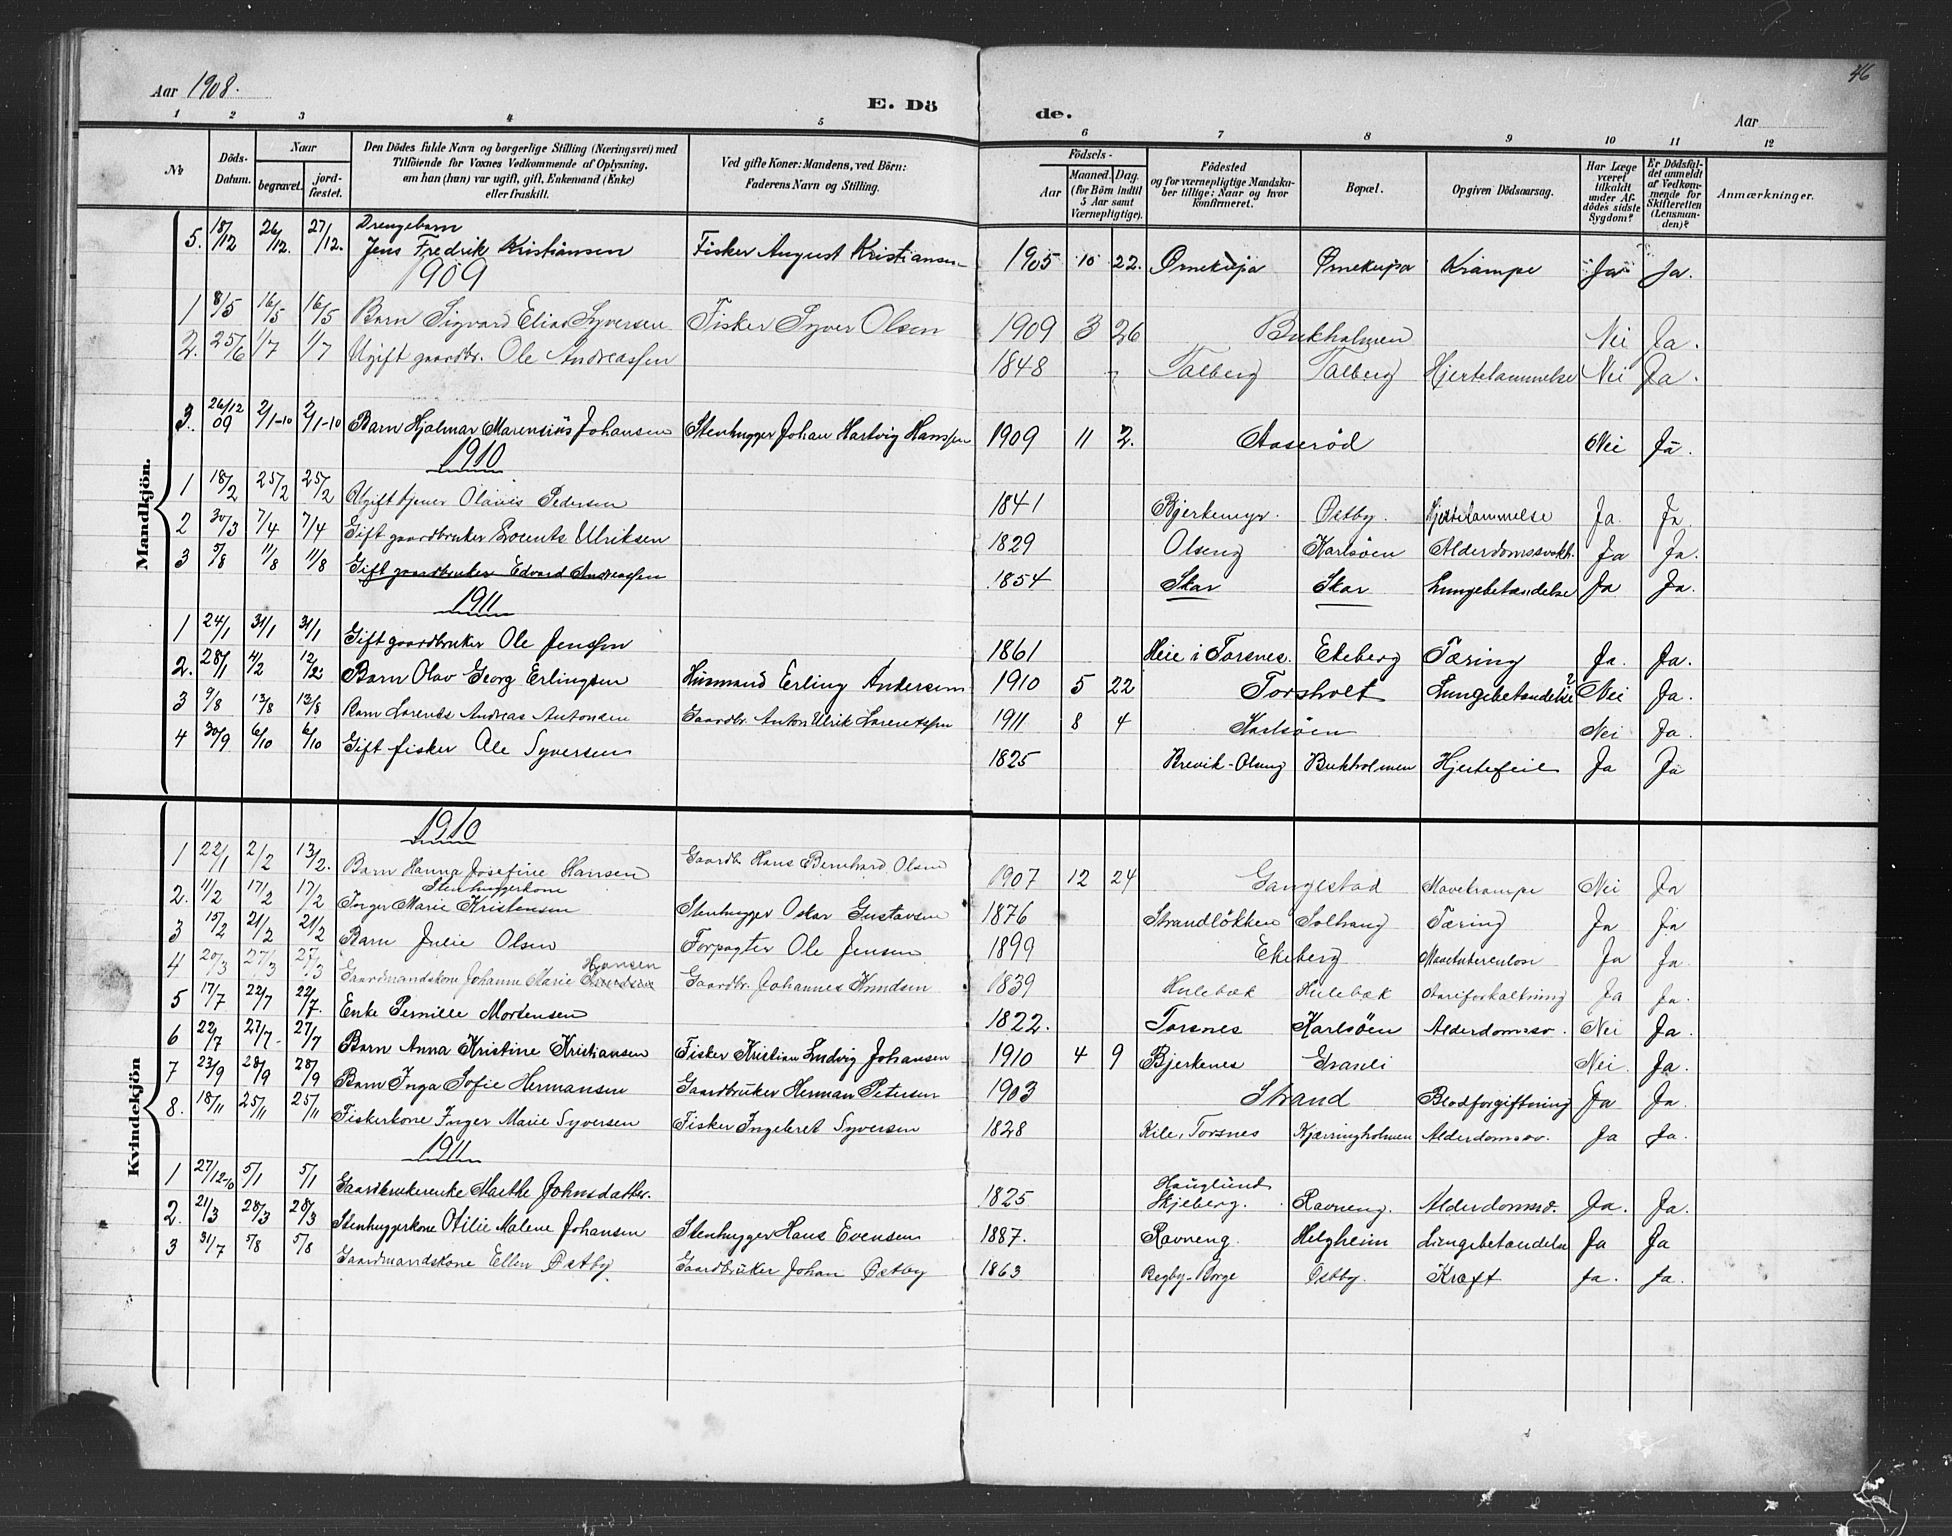 46
Aar 1908.
E. Dö de.
Aar
1 2 3 4 5 6 7 8 9 10 11 12
No
Döds-Datum.
Naar
begravet.
jordfæstet.
Den Dödes fulde Navn og borgerlige Stilling (Næringsvei) med Tilföiende for Voxnes Vedkommende af Oplysning, om han (hun) var ugift, gift, Enkemand (Enke) eller fraskilt.
Ved gifte Koner: Mandens, ved Börn: Faderens Navn og Stilling.
Födsels-
Aar
Maaned. Dag.
(for Börn indtil 5 Aar samt Værnepligtige).
Födested og for værnepligtige Mandskaber tillige: Naar og hvor konfirmeret.
Bopæl.
Opgiven Dödsaarsag.
Har Læge været tilkaldt under Afdödes sidste Sygdom?
Er Dödsfaldet anmeldt af Vedkommende for Skifteretten (Lensmanden)?
Anmærkninger.
Mandkjön.
5. 18/12 26/12. 27/12. Drengebarn Jens Fredrik Kristiansen Fisker August Kristiansen 1905 10 22. Ørnekupa Ørnekupa Krampe Ja Ja.
1909
1 8/5 16/5 16/5 Barn Sigvard Elias Syversen Fisker Syver Olsen 1909 3 26 Bukholmen Nei Ja.
2. 25/6 1/7 1/7 Ugift gaardbr. Ole Andreassen 1848 Talberg Talberg Hjertelammelse Nei Ja.
3. 26/12 09 2/1-10 2/1-10 Barn Hjalmar Marensius Johansen Stenhugger Johan Hartvig Hanssen 1909 11 2. Aaserød Nei Ja.
1910
1 18/2 25/2 25/2 Ugift tjener Olaves Pedersen 1841 Bjerkemyr. Østby. Hjertelammelse Ja. Ja.
2 30/3 7/4 7/4 Gift gaardbruker Ulriksen 1829 Olseng Karlsøen Alderdomssvakh. Ja Ja.
3 5/8 11/8 11/8 Gift gaardbruker Edvard Andreassen 1854 Skar Skar Lungebetændelse Ja Ja.
1911
1 24/1 31/1 31/1 Gift gaardbruker Ole Jenssen 1861 Heie i Torsnes. Ekeberg Tæring Ja. Ja.
2. 28/1 4/2 12/22 Barn Olav Georg Erlingsen Husmand Erling Andersen 1910 5 22 Torsholt Lungebetændelse? Nei Ja.
3 9/8 13/8 13/8 Barn Lorents Andreas Antonsen Gaardbr. Anton Ulrik Lorentssen 1911 8 4 Karlsøen Nei Ja.
4 30/9 6/10 6/10 Gift fisker Ole Syversen 1825 Brevik-Olseng Bukholmen Hjertefeil Ja Ja
Kvindekjön
1910
1 22/1 2/2 13/2. Barn Hanna Josefine Hansen Gaardb. Hans Bernhard Olsen 1907 12 24 Gangestad Mavekrampe Nei Ja
2. 11/2 17/2 17/2 Stenhuggerkone Inger Marie Kristensen Stenhugger Oskar Gustavsen 1876 Strandløkken Solhaug Tæring Ja Ja
3 15/2 21/2 21/2 Barn Julie Olsen Forpagter Ole Jensen 1899 Ekeberg Mavetuberculose Ja Ja.
4 20/3 27/3 27/3 Gaardmandskone Johanne Marie Hansen Gaardbr. Johannes Knudsen 1839 Hulebæk Hulebæk Aareforkalkning Ja Ja.
5 17/7 22/7 22/7. Enke Pernille Mortensen 1822. Torsnes Karlsøen Alderdomssv. Nei Ja.
6 22/7 27/7 27/7 Barn Anna Kristine Kristiansen Fisker Kristian Ludvig Johansen 1910 4 9 Bjerkenes Granli Nei. Ja.
7 23/9 28/9 28/9 Barn Inga Sofie Hermansen Gaardbruker Herman Petersen 1903 Strand Blodforgiftning Ja Ja.
8. 18/11 25/11 25/11 Fiskerkone Inger Marie Syversen Fisker Ingebret Syversen 1828 Kile, Torsnes Kjærringholmen Alderdomssv. Ja Ja.
1911
1 27/12-10 5/1 5/1 Gaardbrukerenke Marthe Johnsdatter. 1825 Hauglund Skjeberg. Ravneng. Alderdomssv. Ja. Ja.
2. 21/3 28/3 28/3 Stenhuggerkone Otilie Malene Johansen Stenhugger Hans Evensen 1887. Ravneng. Helgheim Lungebetændelse Ja Ja
3 31/7 5/8 5/8 Gaardmandskone Ellen Østby. Gaardbruker Johan Østby 1863 Begby-Borge Østby. Kræft Ja. Ja.